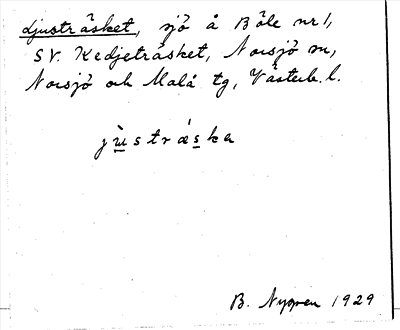 Ljusträsket, sjö å Böle nr 1,
SV. Kedjeträsket, Norsjö sn,
Norsjö och Malå tg, Västerb. l.
jùsträ́ska
B. Nygren 1929